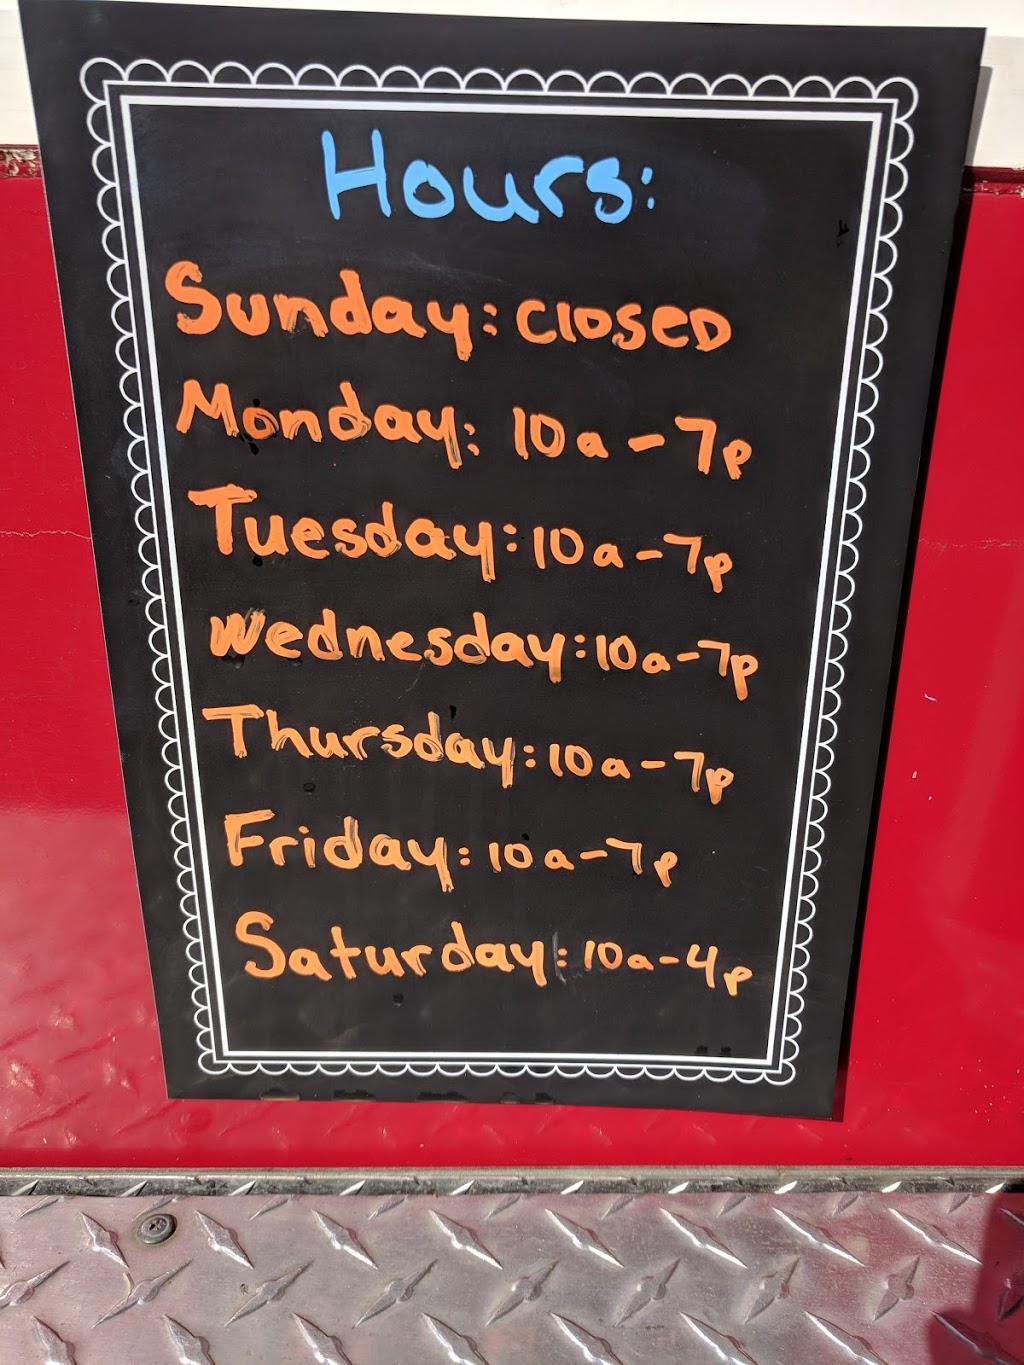 Hours:
Sunday: Closed
Monday: 10a-7p
Tuesday: 10a-7p
Wednesday: 10a-7p
Thursday: 10a-7p
Friday: 10a-7p
Saturday: 10a-4p